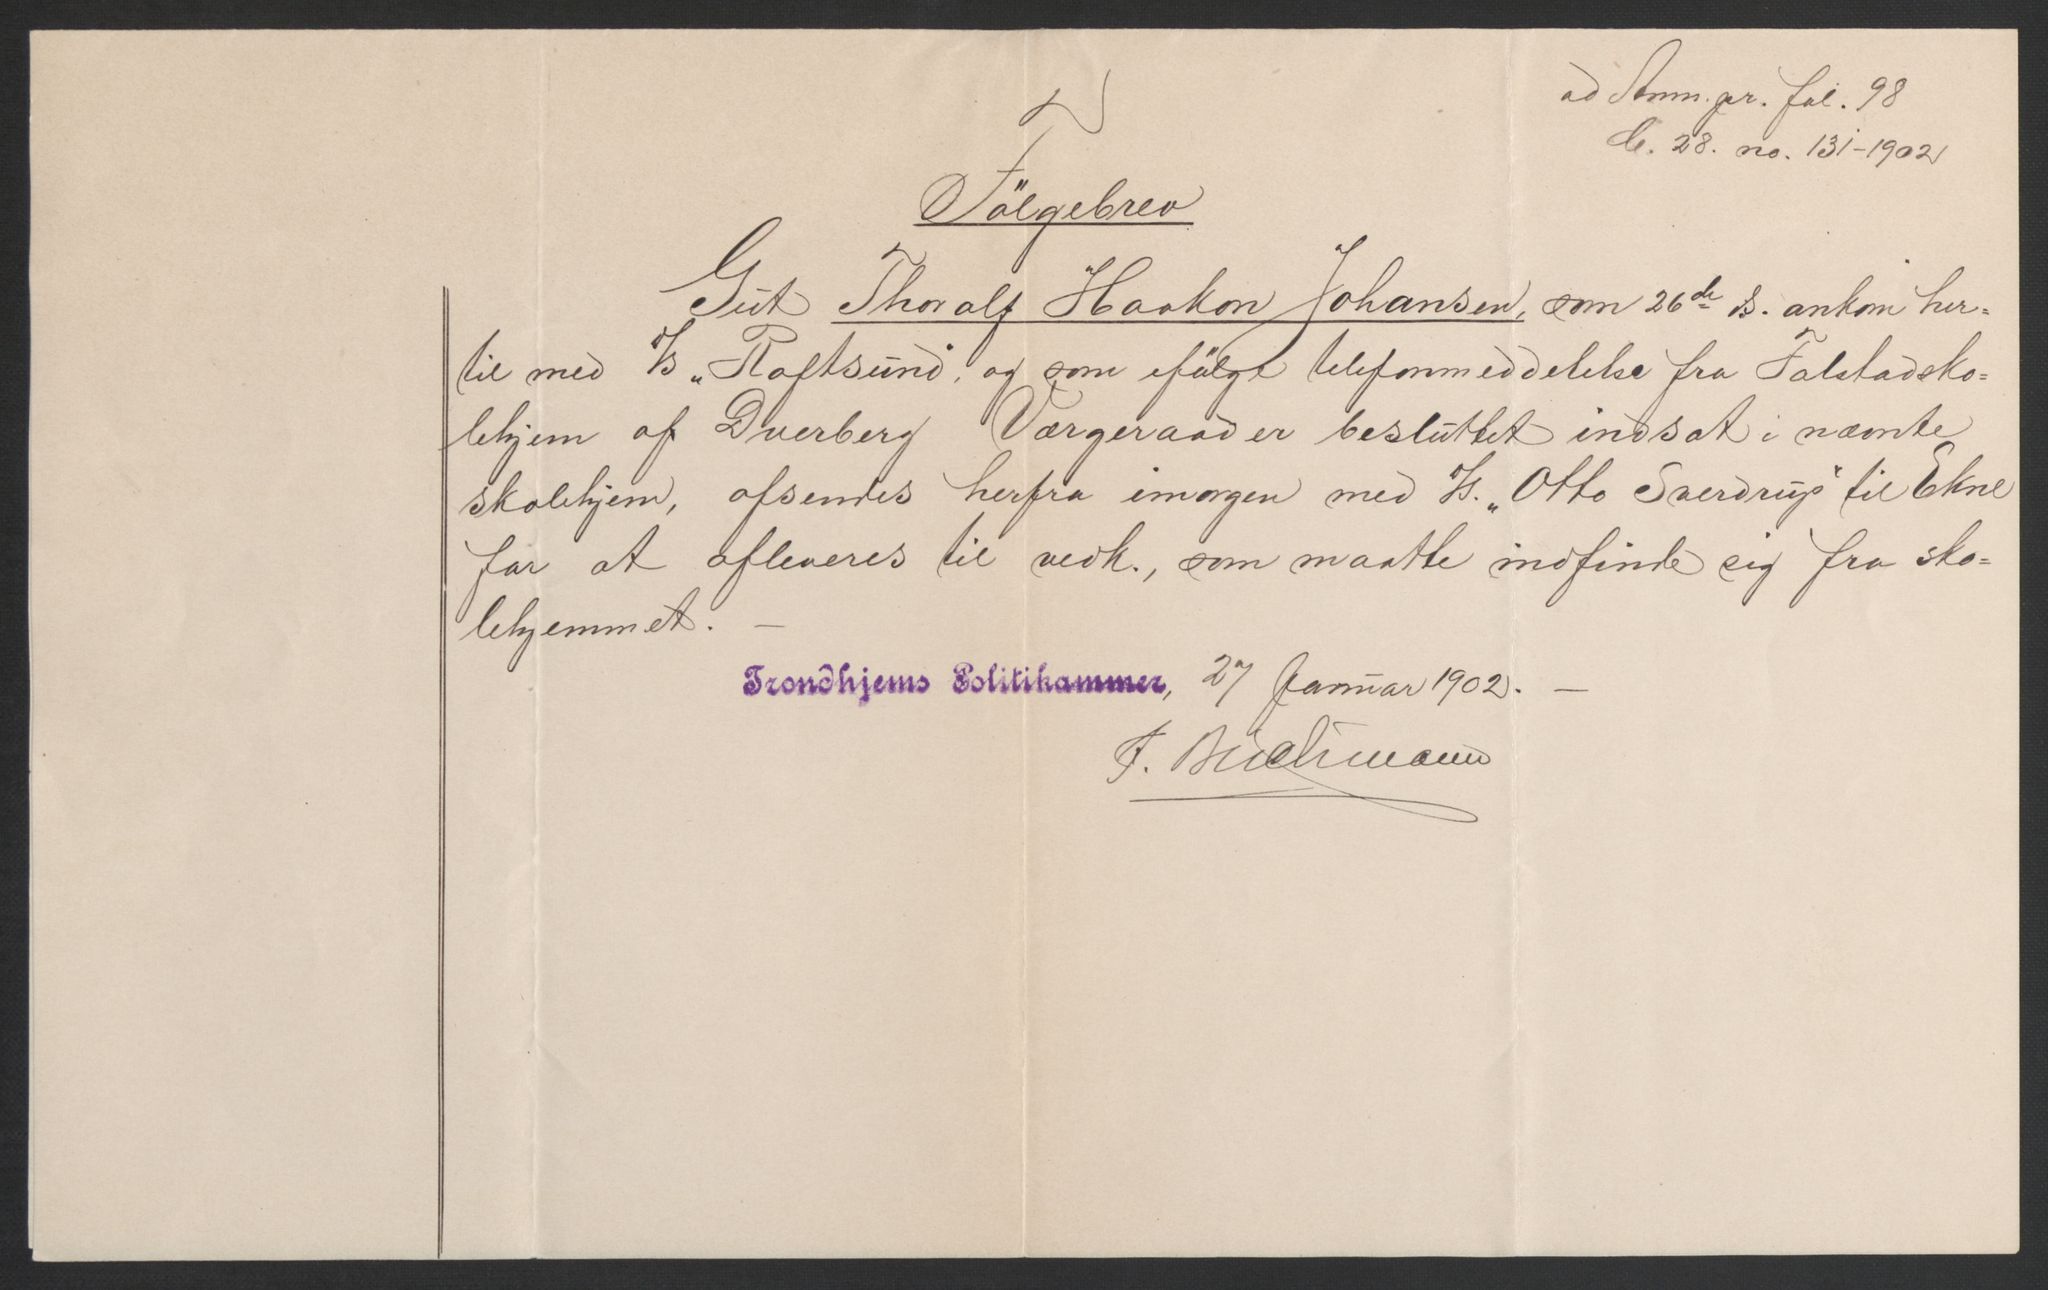 ad Anm.pr. fol. 98
C. 28. no. 131-1902
Fölgebrev
Gut Thoralf Haakon Johansen, som 26de ds. ankom her=
til med D/s „Raftsund", og som ifölge telefonmeddelelse fra Falstadsko=
lehjem af Dverberg Værgeraad er besluttet indsat i nævnte
skolehjem, afsendes herfra imorgen med D/s. „Otto Sverdrup" til Ekne
for at afleveres til vedk., som maatte indfinde sig fra sko=
lehjemmet. —
Trondhjems Politikammer, 27 Januar 1902. —
F. Buchmann